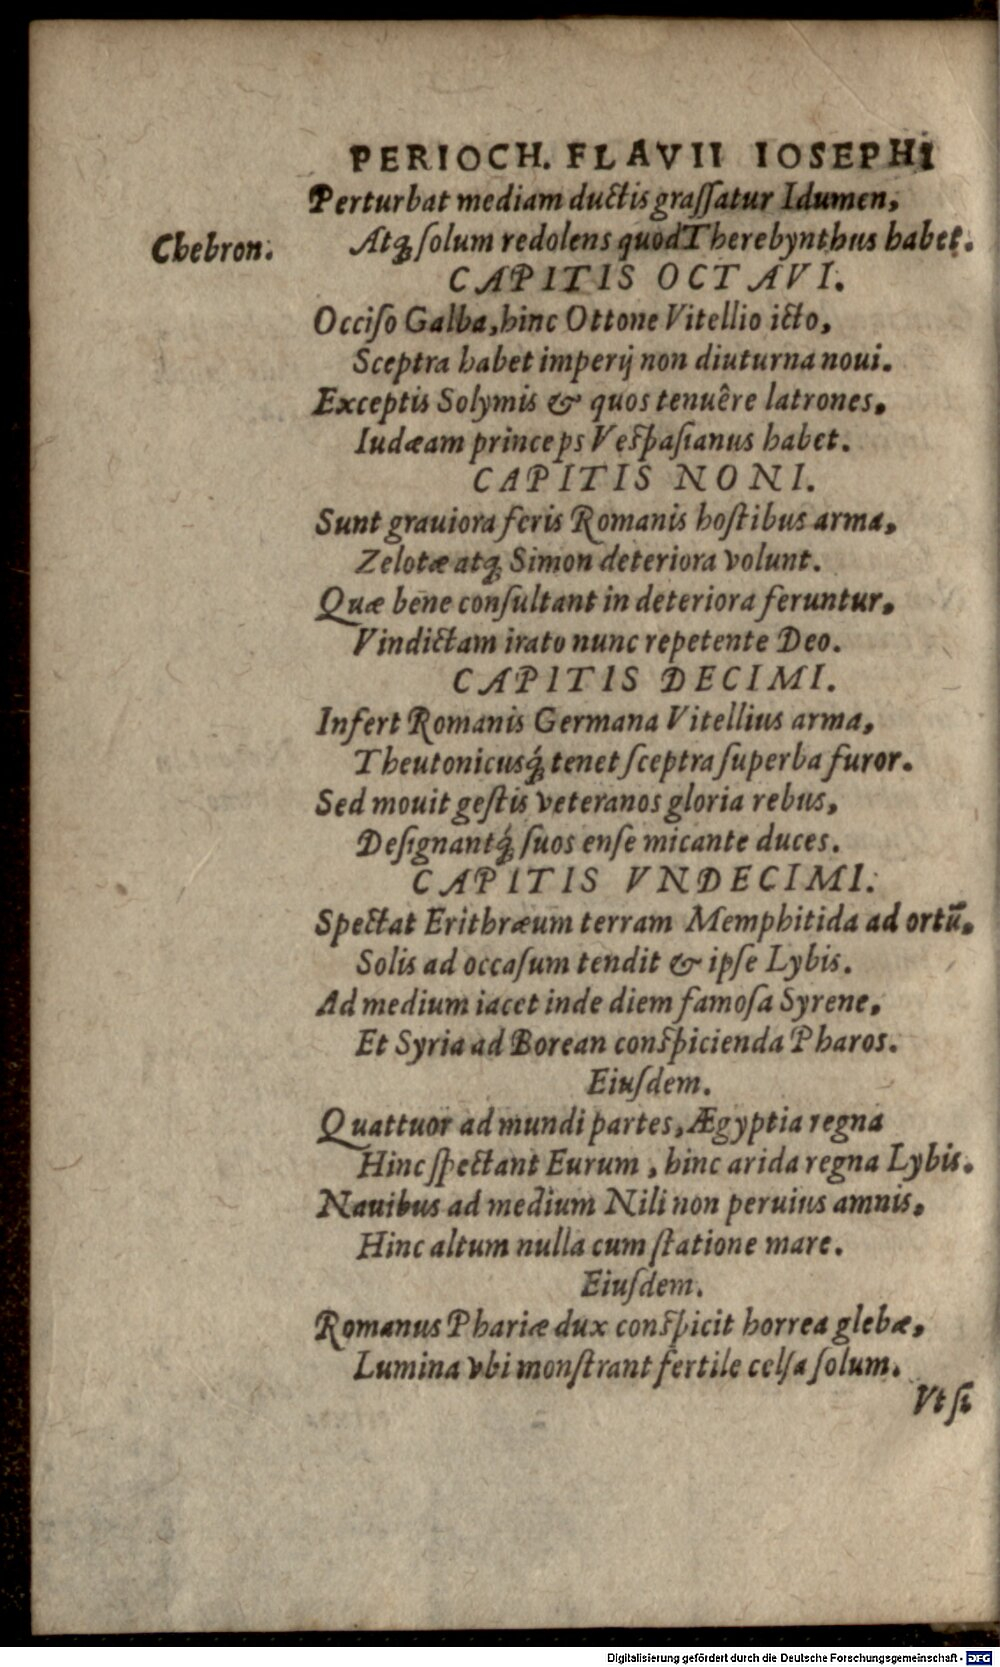 PERIOCH. FLAVII IOSEPHI
Perturbat mediam ductis graſſatur Idumen,
Chebron.
Atq́; ſolum redolens quod Therebynthus habet.
CAPITIS OCTAVI.
Occiſo Galba, hinc Ottone Vitellio icto,
Sceptra habet imperij non diuturna noui.
Exceptis Solymis & quos tenuêre latrones,
Iudæam princeps Veſpaſianus habet.
CAPITIS NONI.
Sunt grauiora feris Romanis hoſtibus arma,
Zelotæ atq; Simon deteriora volunt.
Quæ bene conſultant in deteriora feruntur,
Vindictam irato nunc repetente Deo.
CAPITIS DECIMI.
Infert Romanis Germana Vitellius arma,
Theutonicusq́; tenet ſceptra ſuperba furor.
Sed mouit geſtis veteranos gloria rebus,
Deſignantq́; ſuos enſe micante duces.
CAPITIS VNDECIMI.
Spectat Erithræum terram Memphitida ad ortū,
Solis ad occaſum tendit & ipſe Lybis.
Ad medium iacet inde diem famoſa Syrene,
Et Syria ad Borean conſpicienda Pharos.
Eiuſdem.
Quattuor ad mundi partes, Ægyptia regna
Hinc ſpectant Eurum, hinc arida regna Lybis.
Nauibus ad medium Nili non peruius amnis,
Hinc altum nulla cum ſtatione mare.
Eiuſdem.
Romanus Phariæ dux conſpicit horrea glebæ,
Lumina vbi monſtrant fertile celſa ſolum.
Vt ſi
Digitalisierung gefördert durch die Deutsche Forschungsgemeinschaft - DFG